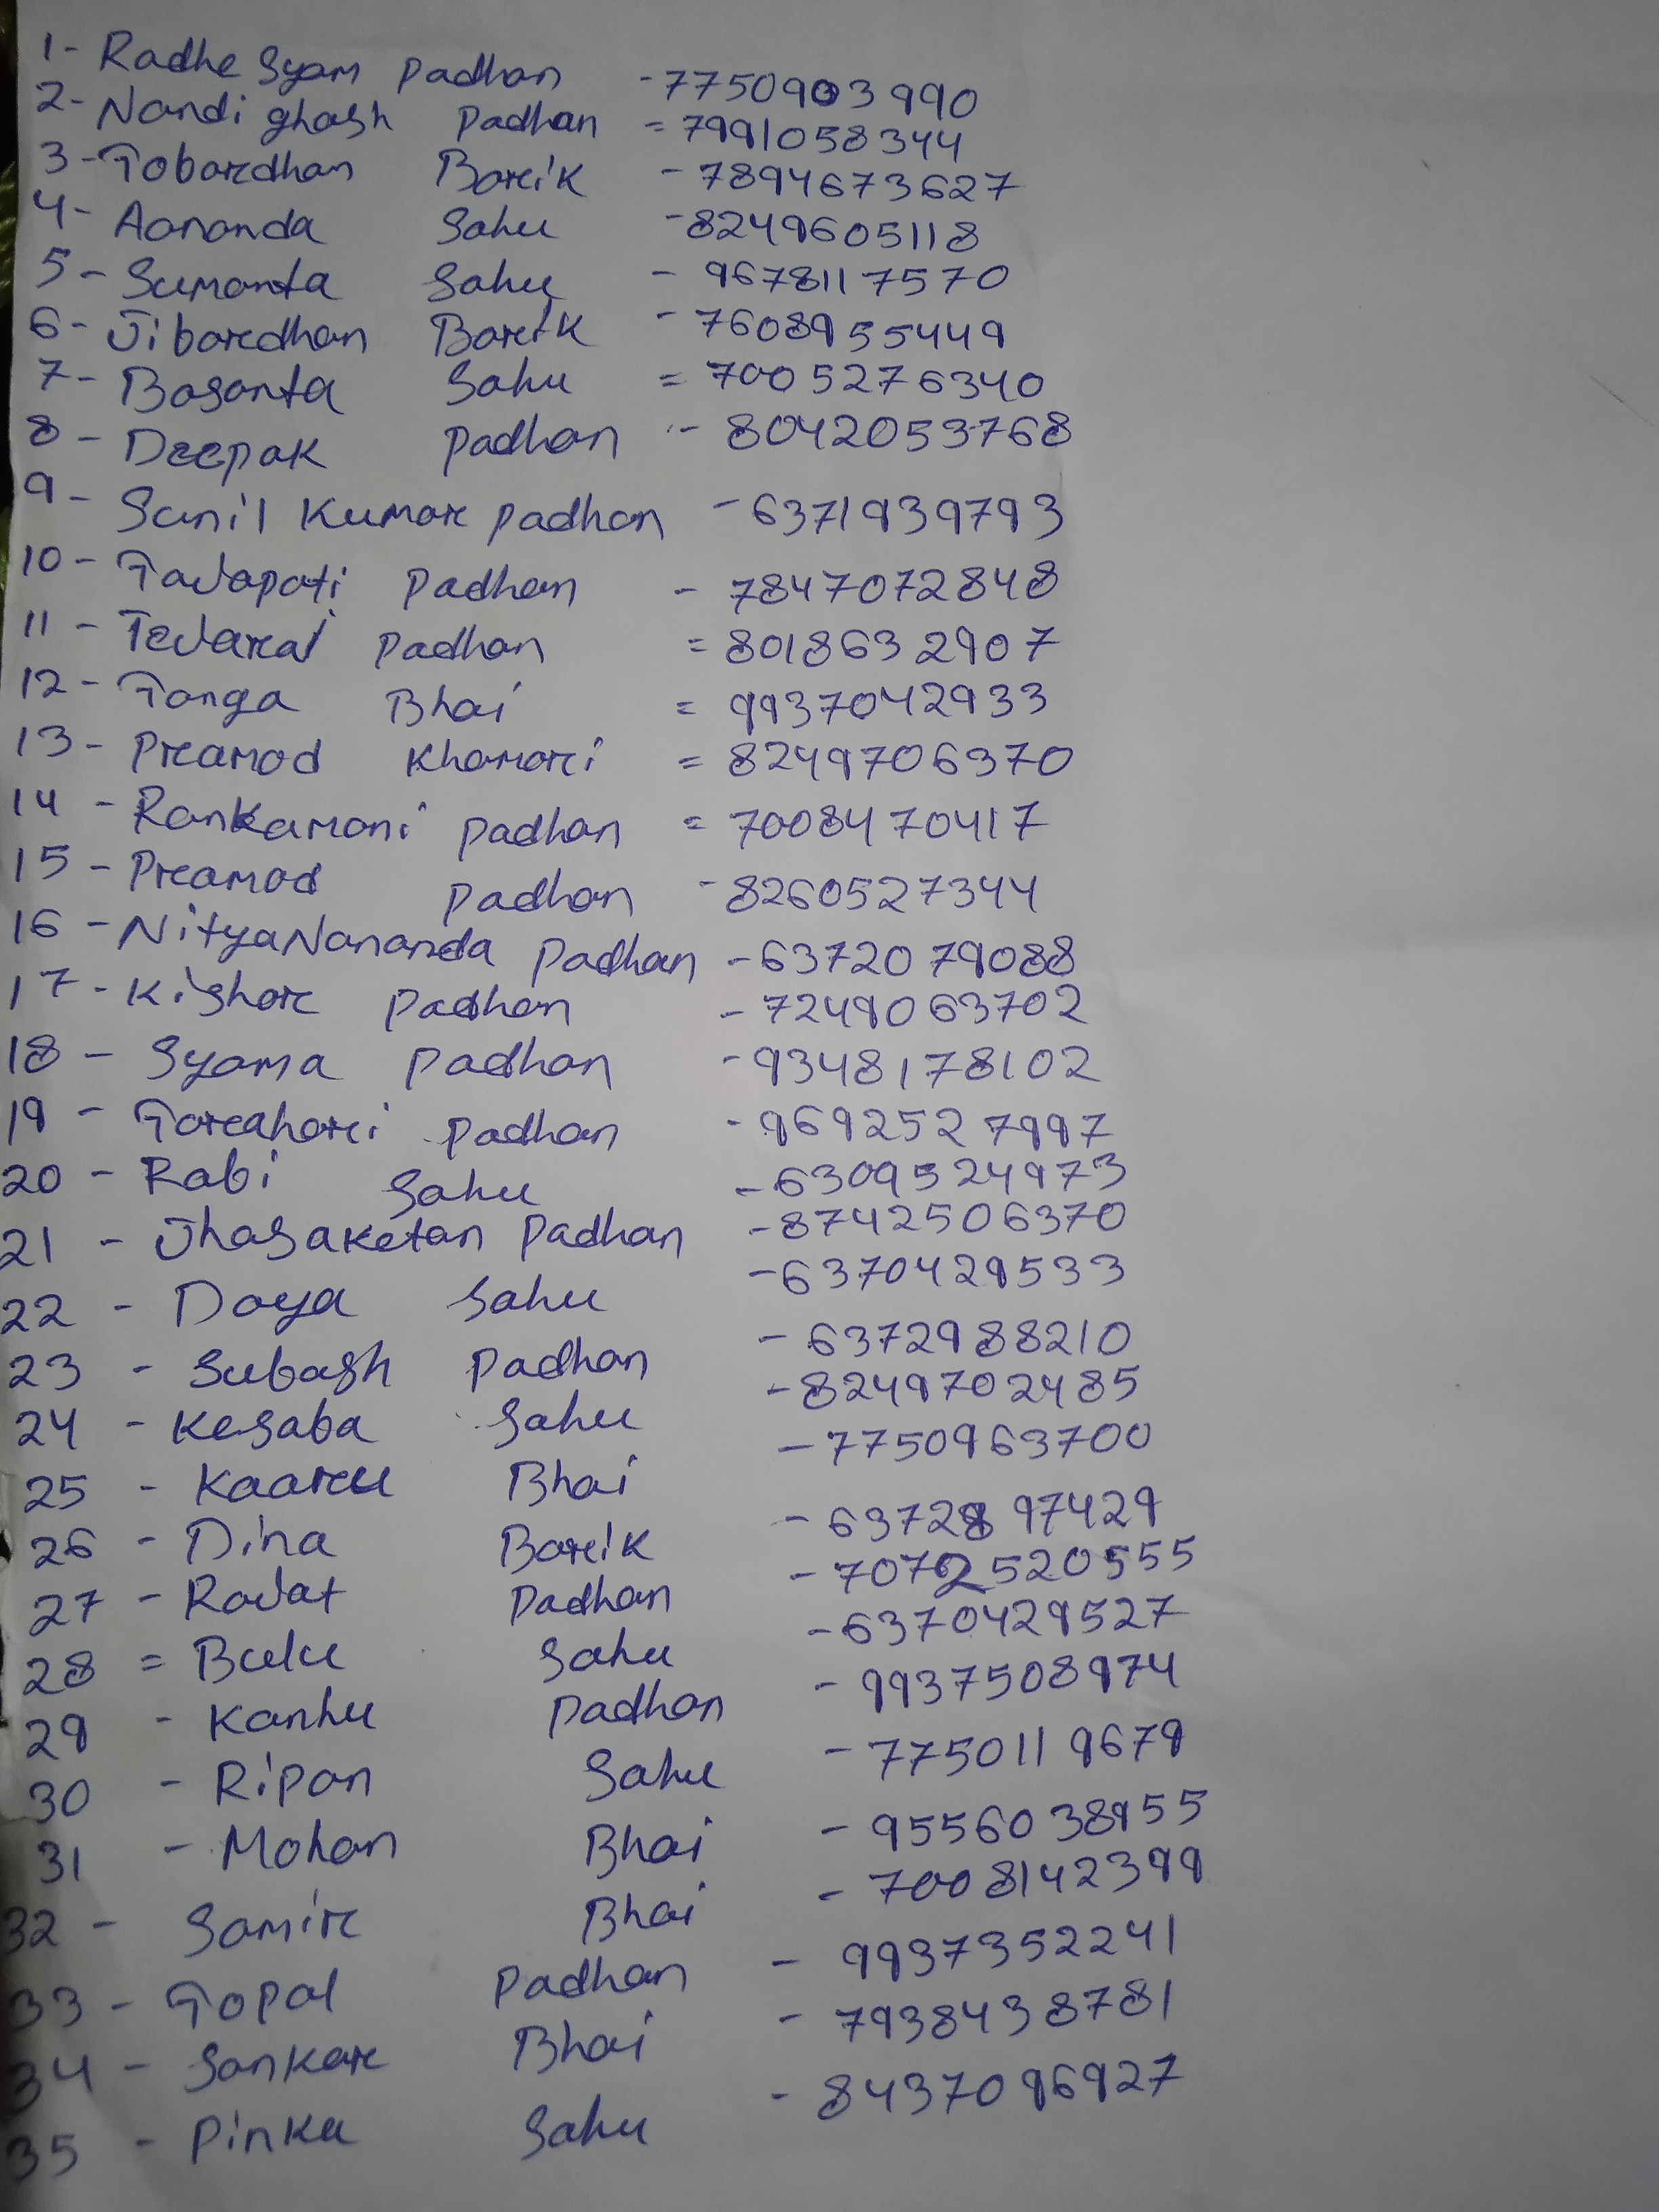 1- Radhe Syam Padhan - 7750903990
2- Nandi ghosh Padhan = 7991058344
3- Gobardhan Barik - 7894673627
4- Aananda Sahu - 8249605118
5- Sumanta Sahu - 9678117570
6- Jibardhan Barik - 7608955449
7- Basanta Sahu = 7005276340
8- Deepak Padhan - 8042053768
9- Sunil Kumar Padhan - 6371939793
10- Gajapati Padhan - 7847072848
11- Tejaraj Padhan = 8018632907
12- Ganga Bhai = 9937042933
13- Pramod Khamari = 8249706370
14- Rankamani Padhan = 7008470417
15- Pramod Padhan - 8260527344
16- NityaNananda Padhan - 6372079088
17- Kishor Padhan - 7249063702
18- Syama Padhan - 9348178102
19- Gorahari Padhan - 9692527997
20- Rabi Sahu - 6309524973
21- Jhasaketan Padhan - 8742506370
22- Daya Sahu - 6370429533
23- Subash Padhan - 6372988210
24- Kesaba Sahu - 8249702485
25- Kaaru Bhai - 7750963700
26- Dina Barik - 6372897429
27- Rajat Padhan - 7072520555
28= Bulu Sahu - 6370429527
29- Kanhu Padhan - 9937508974
30- Ripan Sahu - 7750119679
31- Mohan Bhai - 9556038955
32- Samir Bhai - 7008142399
33- Gopal Padhan - 9937352241
34- Sankar Bhai - 7938438781
35- Pinku Sahu - 8437096927